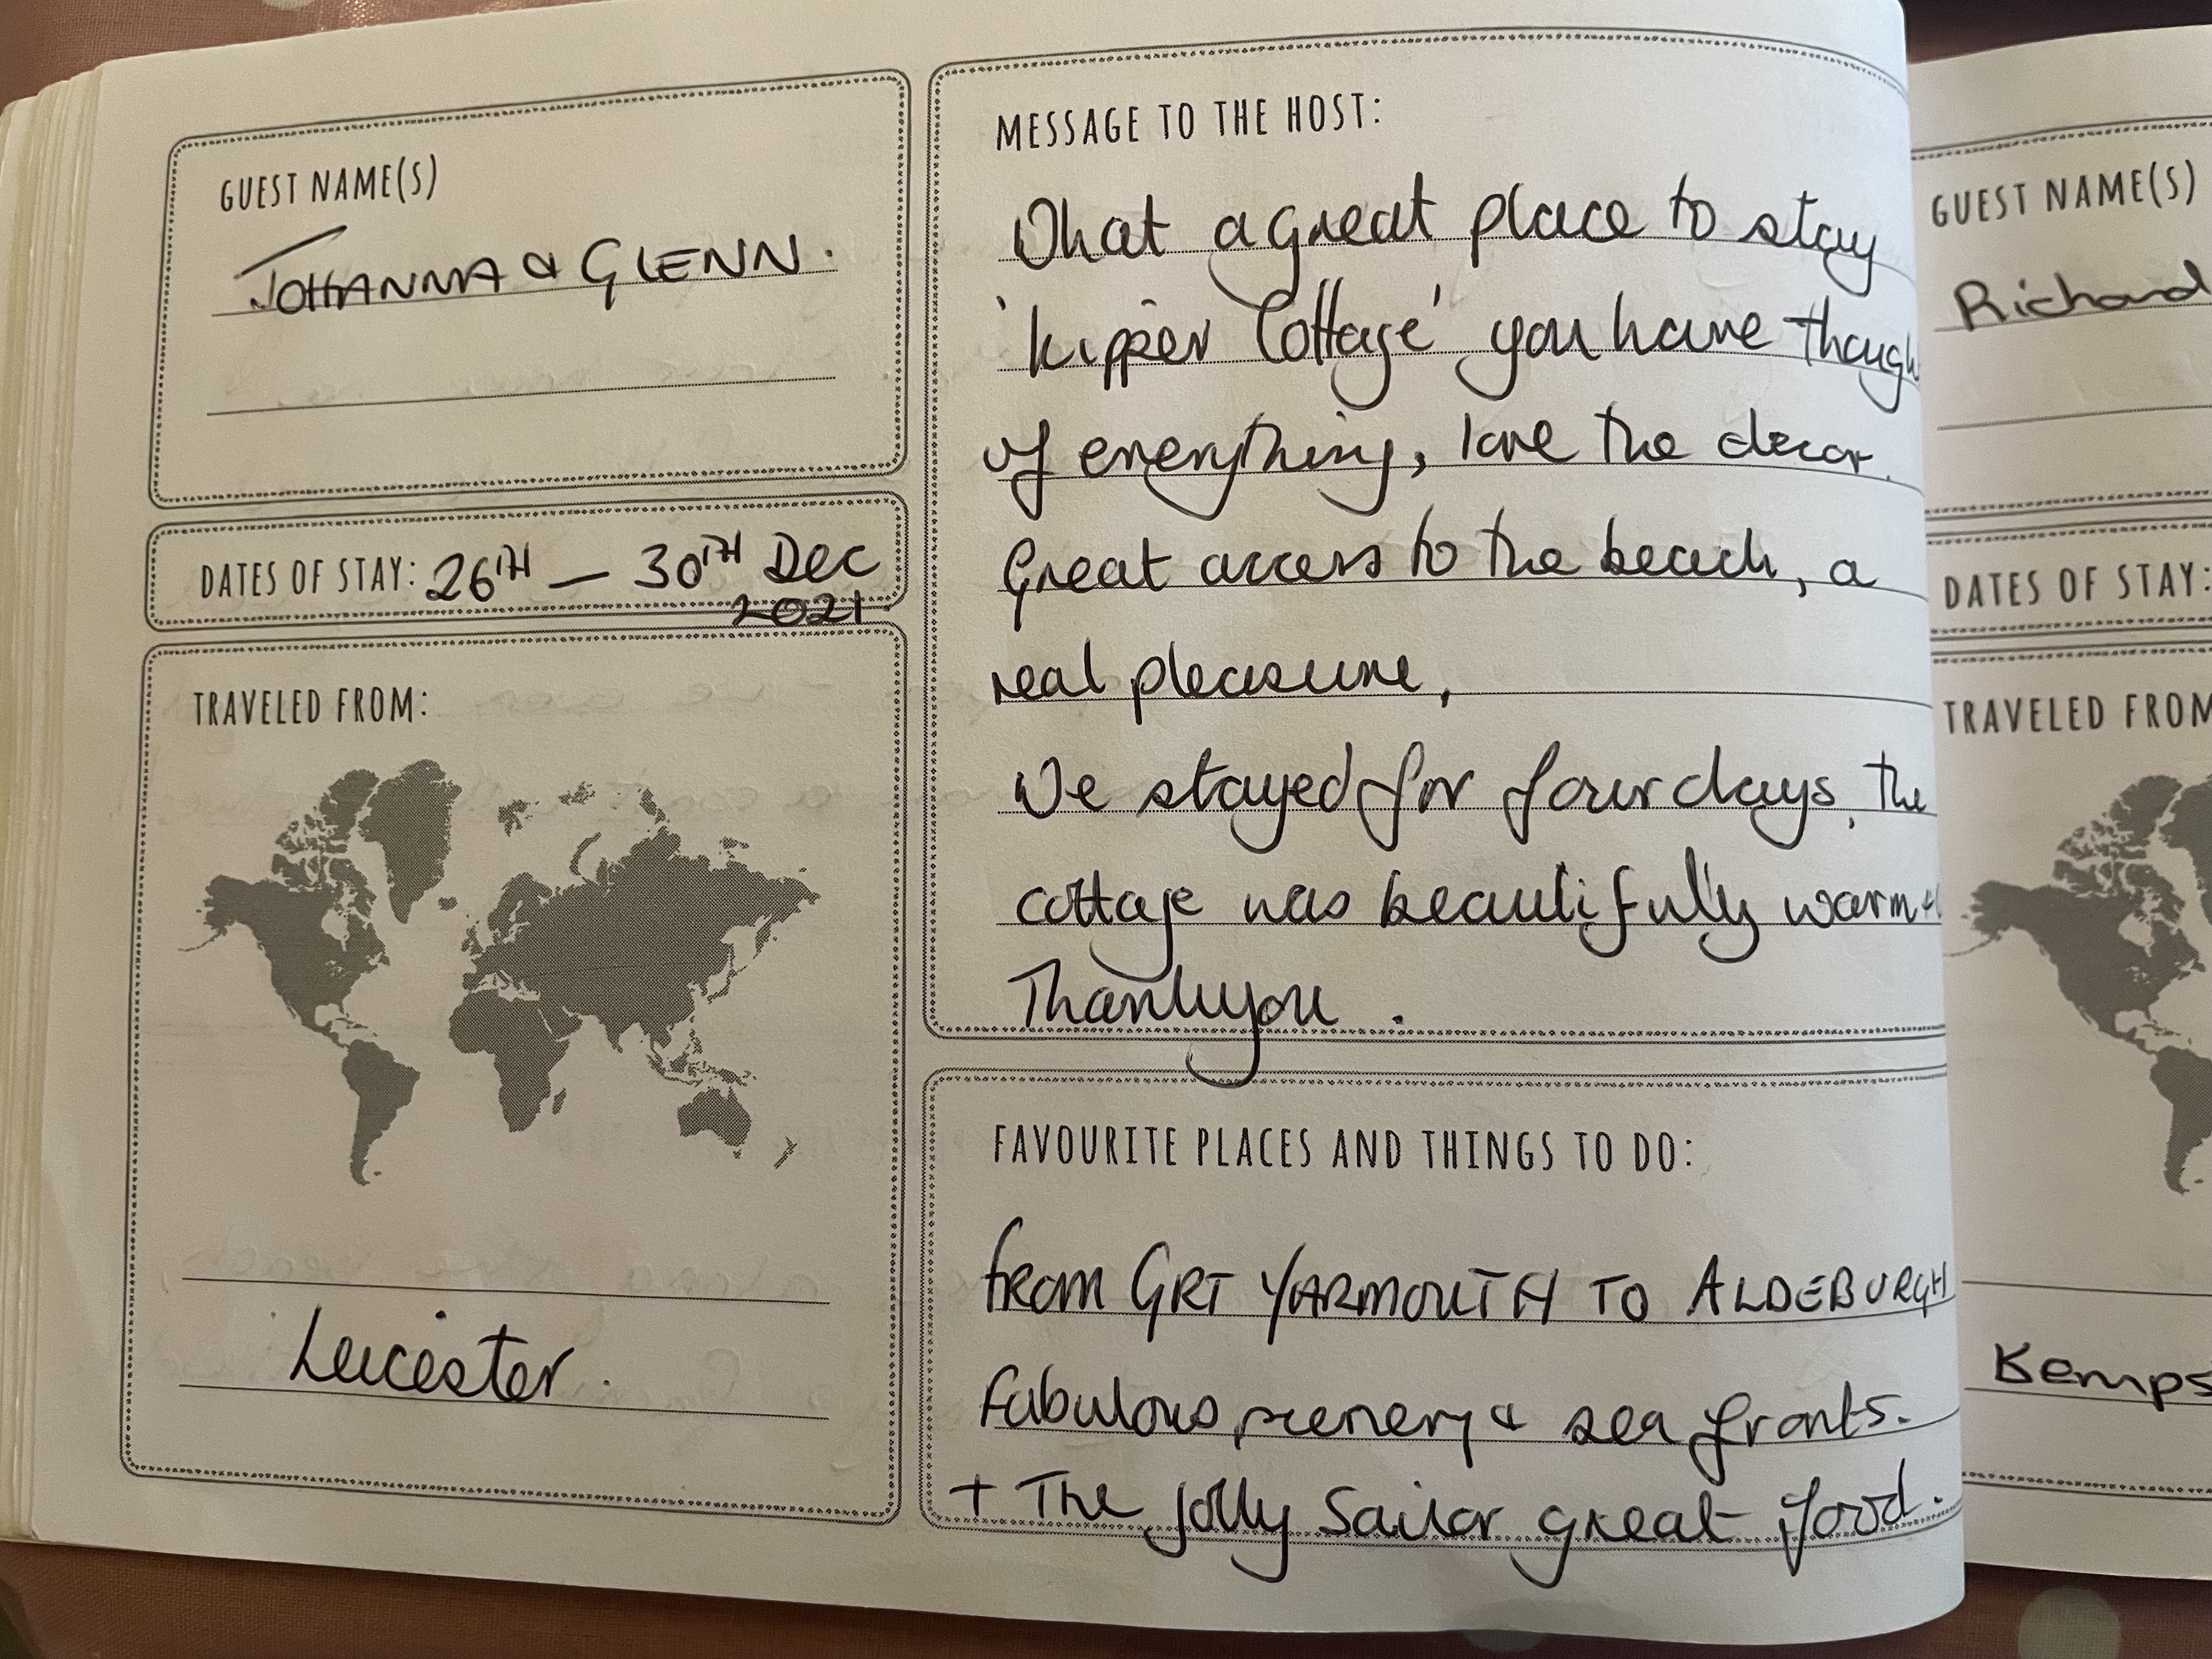 GUEST NAME(S)
JOHANNA & GLENN.
DATES OF STAY: 26TH — 30TH DEC
2021.
TRAVELED FROM:
Leicester.
MESSAGE TO THE HOST:
What a great place to stay
'Kipper Cottage' you have though
of everything, love the decor.
Great access to the beach, a
real pleasure,
We stayed for four days, the
cottage was beautifully warm +
Thankyou.
FAVOURITE PLACES AND THINGS TO DO:
from GRT YARMOUTH TO ALDEBURGH
Fabulous scenery & sea fronts.
+ The Jolly Sailor great food.
GUEST NAME(S)
Richard
DATES OF STAY:
TRAVELED FROM
Kemps